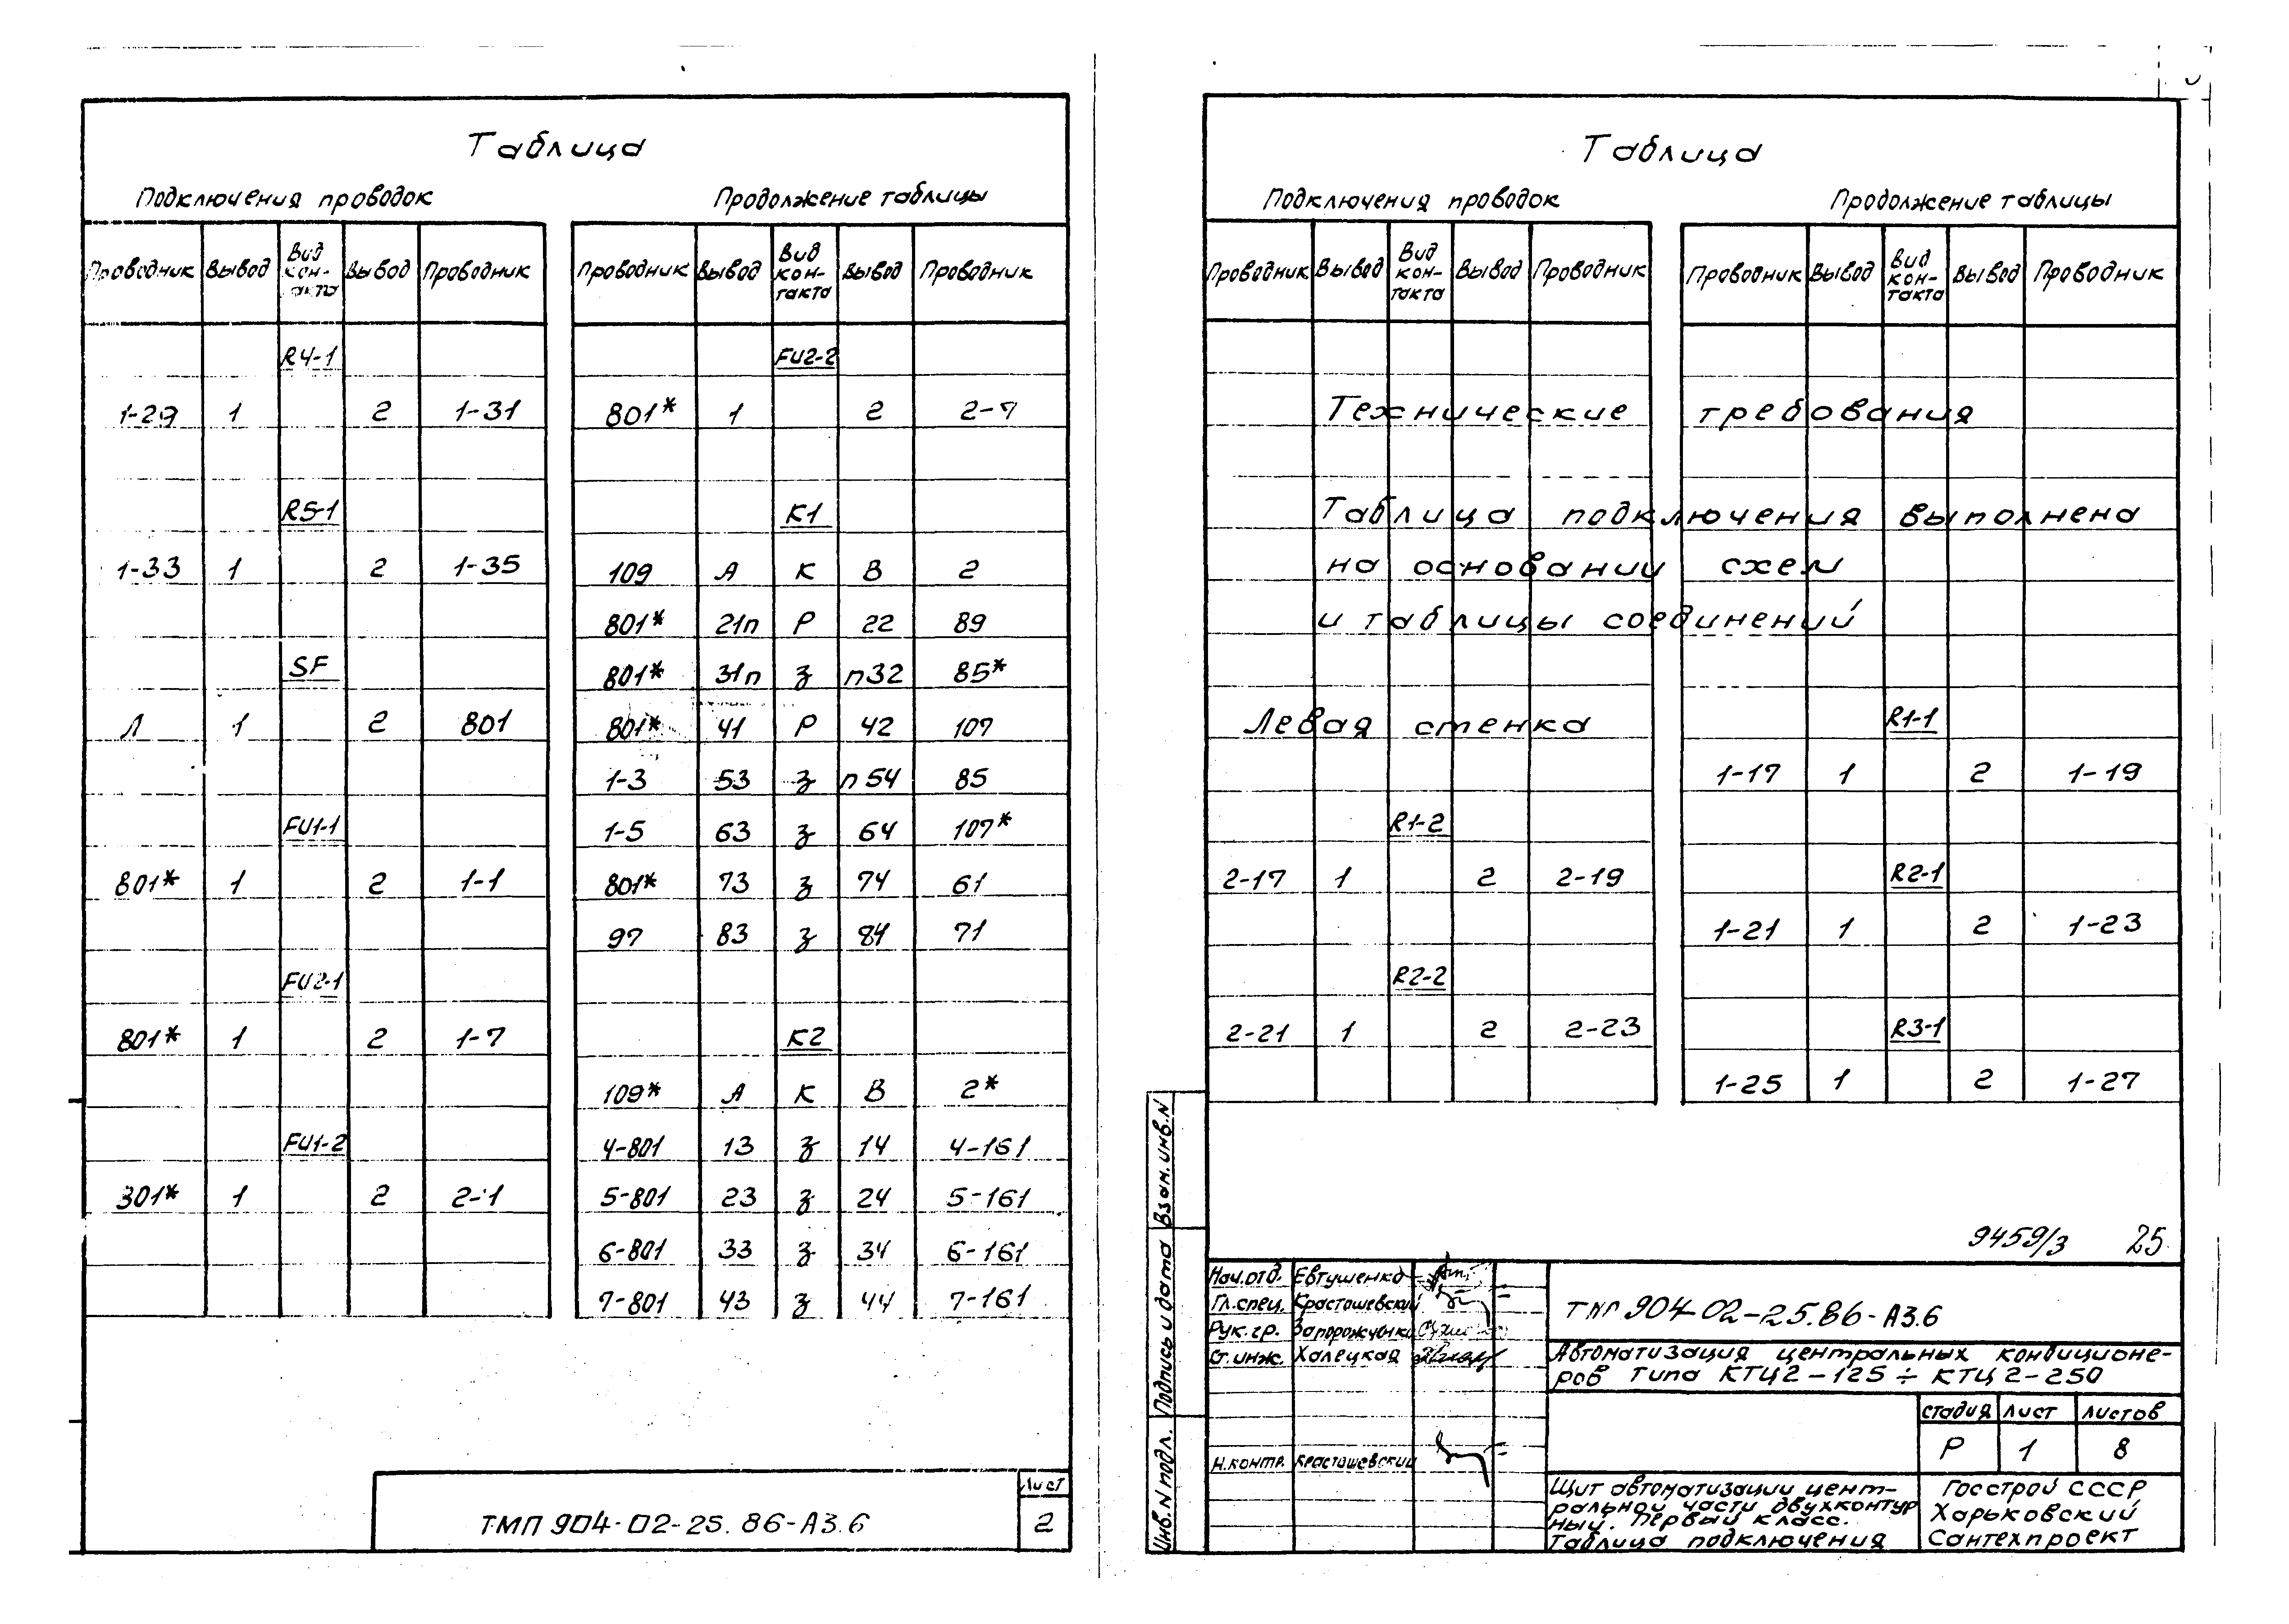 Таблица
Подключения проводок
Продолжение таблицы
Проводник Вывод Вид кон- такта Вывод Проводник
R4-1
1-29 1 2 1-31
R5-1
1-33 1 2 1-35
SF
Л 1 2 801
FU1-1
801* 1 2 1-1
FU2-1
801* 1 2 1-7
FU1-2
301* 1 2 2-1
Проводник Вывод Вид кон- такта Вывод Проводник
FU2-2
801* 1 2 2-7
K1
109 А К В 2
801* 21п Р 22 89
801* 31п З п32 85*
801* 41 Р 42 107
1-3 53 З п54 85
1-5 63 З 64 107*
801* 73 З 74 61
97 83 З 84 71
K2
109* А К В 2*
4-801 13 З 14 4-161
5-801 23 З 24 5-161
6-801 33 З 34 6-161
7-801 43 З 44 7-161
ТМП 904-02-25.86-А3.6
Лист
2
Таблица
Подключения проводок
Продолжение таблицы
Проводник Вывод Вид кон- такта Вывод Проводник
Проводник Вывод Вид кон- такта Вывод Проводник
Технические требования
Таблица подключения выполнена
на основании схем
и таблицы соединений
Левая стенка
R1-2
2-17 1 2 2-19
R2-2
2-21 1 2 2-23
R1-1
1-17 1 2 1-19
R2-1
1-21 1 2 1-23
R3-1
1-25 1 2 1-27
9459/3 25
Взам. инв. N
Подпись и дата
Инв. N подл.
Нач. отд. Евтушенко
Гл. спец. Красташевский
Рук. гр. Запорожченко
Ст. инж. Халецкая
Н. контр. Красташевский
ТМП 904-02-25.86-А3.6
Автоматизация центральных кондиционе-
ров типа КТЦ2-125÷КТЦ2-250
стадия лист листов
Р 1 8
Щит автоматизации цент-
ральной части двухконтур
ный. Первый класс.
Таблица подключения
Госстрой СССР
Харьковский
Сантехпроект